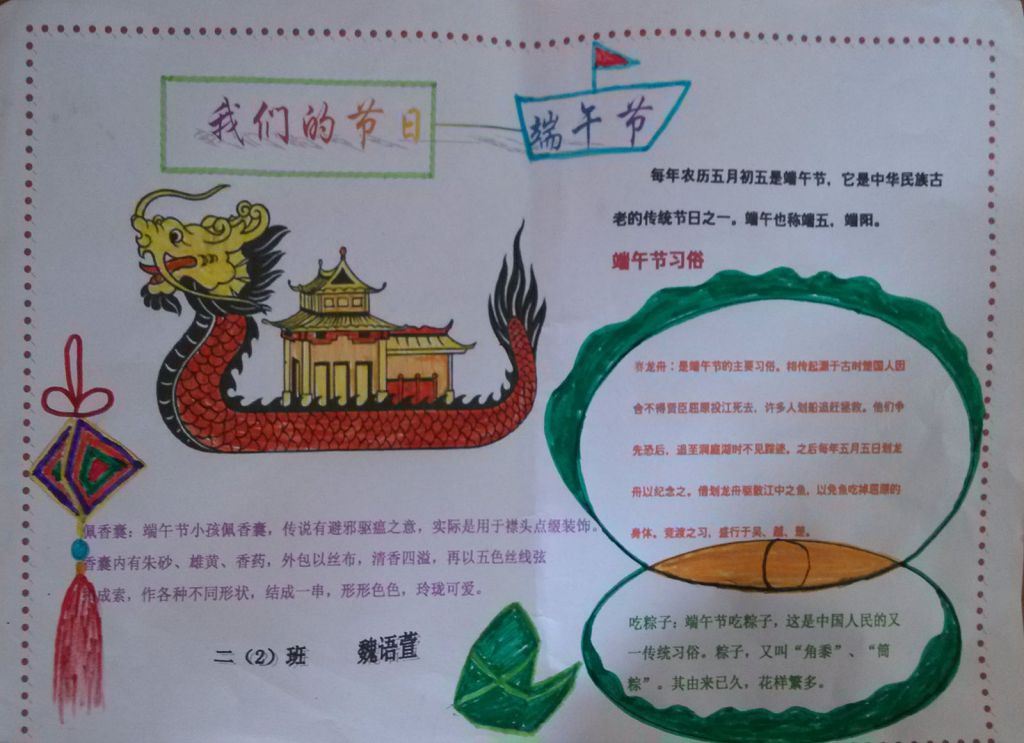 我们的节日
端午节
每年农历五月初五是端午节，它是中华民族古
老的传统节日之一。端午也称端五，端阳。
端午节习俗
赛龙舟：是端午节的主要习俗。相传起源于古时楚国人因
舍不得贤臣屈原投江死去，许多人划船追赶拯救。他们争
先恐后，追至洞庭湖时不见踪迹。之后每年五月五日划龙
舟以纪念之。借划龙舟驱散江中之鱼，以免鱼吃掉屈原的
身体。竞渡之习，盛行于吴、越、楚。
佩香囊：端午节小孩佩香囊，传说有避邪驱瘟之意，实际是用于襟头点缀装饰。
香囊内有朱砂、雄黄、香药，外包以丝布，清香四溢，再以五色丝线弦
成索，作各种不同形状，结成一串，形形色色，玲珑可爱。
吃粽子：端午节吃粽子，这是中国人民的又
一传统习俗。粽子，又叫“角黍”、“筒
粽”。其由来已久，花样繁多。
二（2）班 魏语萱